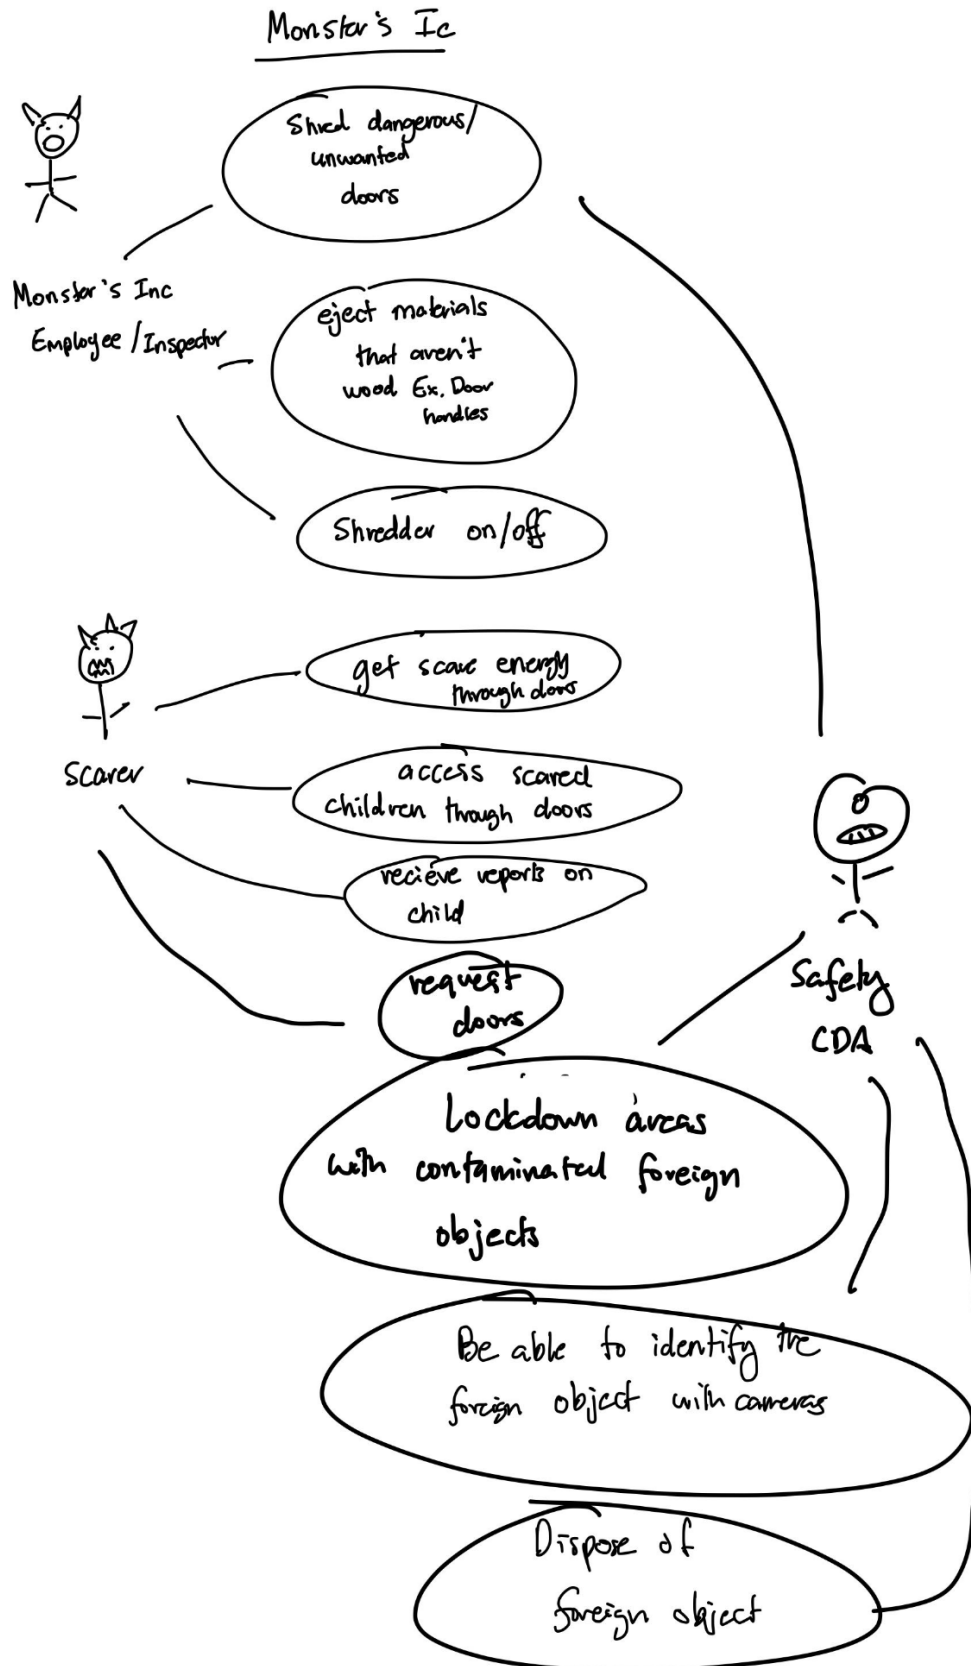 Monstor's Ic
Shred dangerous/
unwanted
doors
Monstor's Inc
Employee/Inspector
eject materials
that aren't
wood Ex. Door
handles
Shredder on/off
get scare energy
through doors
Scarer
access scared
children through doors
recieve reports on
child
request
doors
Safety
CDA
Lockdown areas
with contaminated foreign
objects
Be able to identify the
foreign object with cameras
Dispose of
foreign object